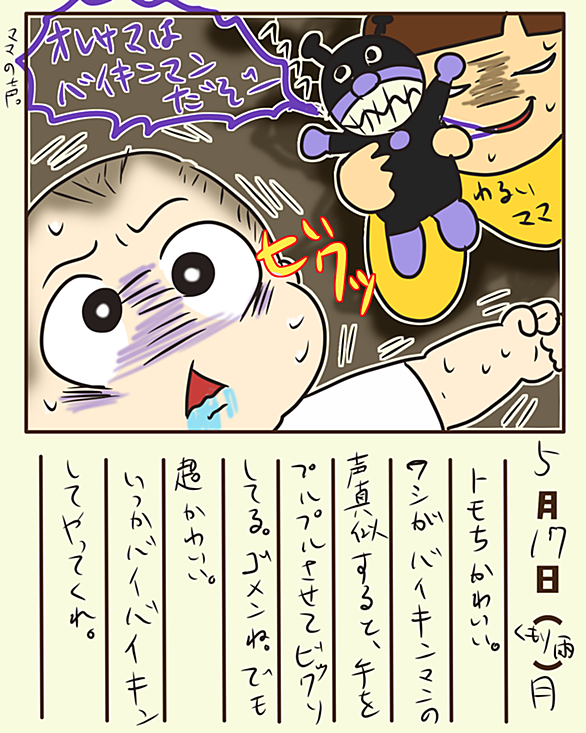 ママの声。
オレサマは
バイキンマン
だぞ〜
わるい
ママ
ビクッ
5月17日(くもり雨)月
トモちかわいい。
ワシがバイキンマンの
声真似すると、手を
プルプルさせてビックリ
してる。ゴメンね。でも
超かわいい。
いつかバイバイキン
してやってくれ。